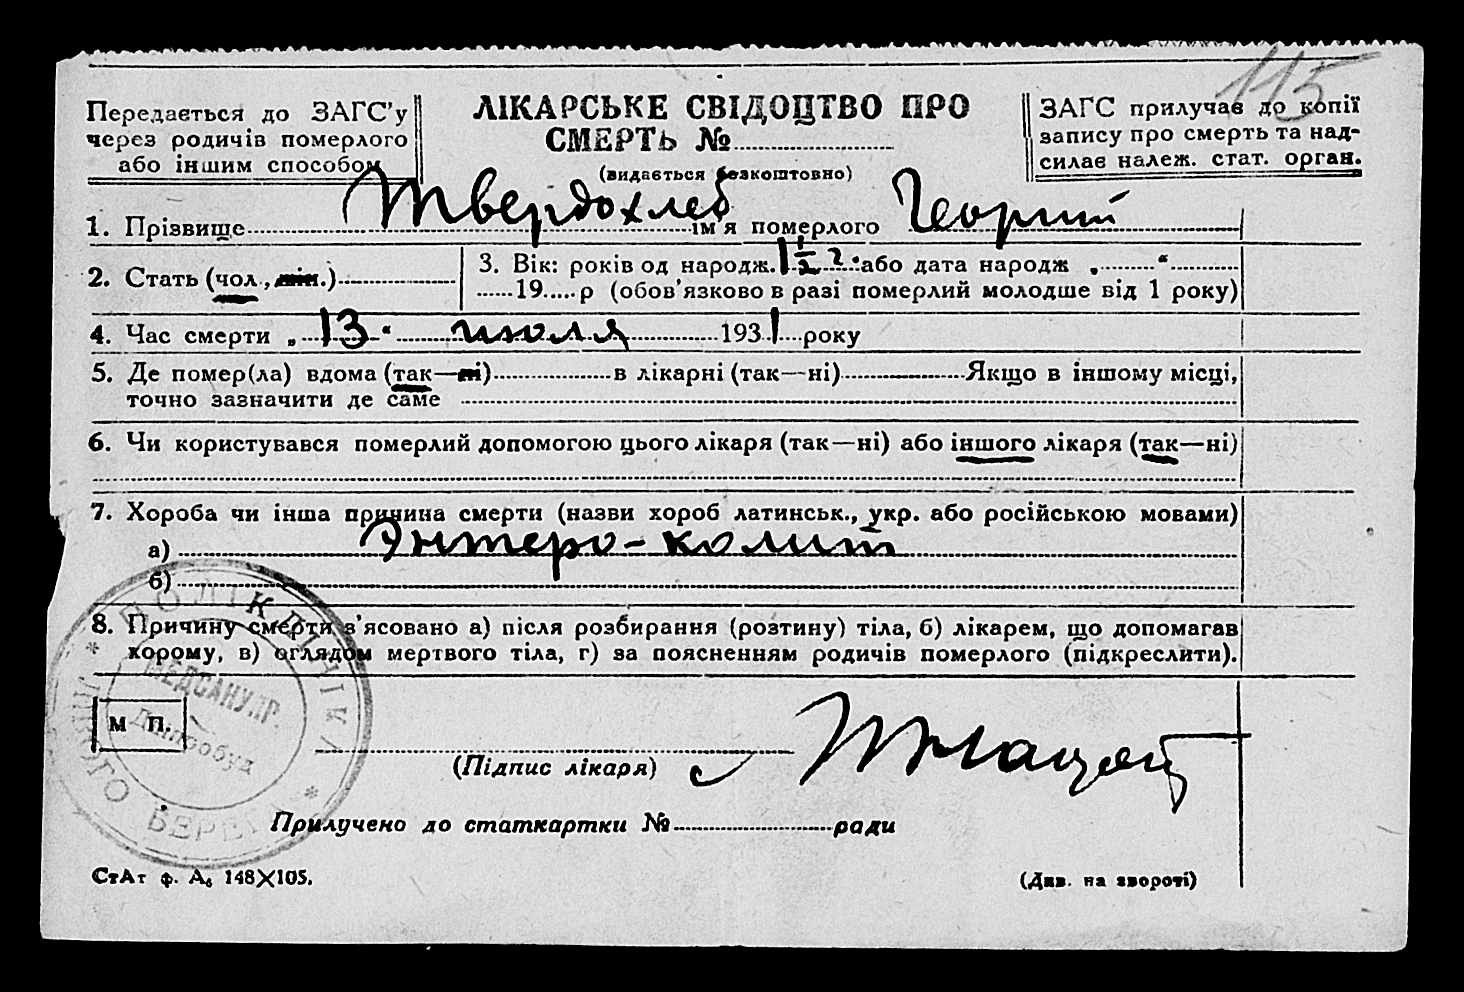 115
Передається до ЗАГС'у
через родичів померлого
або іншим способом
ЛІКАРСЬКЕ СВІДОЦТВО ПРО
СМЕРТЬ №
(видається безкоштовно)
ЗАГС прилучає до копії
запису про смерть та над-
силає належ. стат. орган.
1. Прізвище Твердохлеб ім'я померлого Георгий
2. Стать (чол., жін.)
3. Вік: років од народж. 1 1/2 г. або дата народж „ “
19 р (обов'язково в разі померлий молодше від 1 року)
4. Час смерти „ 13 “ июля 1931 року
5. Де помер(ла) вдома (так—ні) в лікарні (так—ні) Якщо в іншому місці,
точно зазначити де саме
6. Чи користувався померлий допомогою цього лікаря (так—ні) або іншого лікаря (так—ні)
7. Хороба чи інша причина смерти (назви хороб латинськ., укр. або російською мовами)
а) Энтеро-колит
б)
8. Причину смерти з'ясовано а) після розбирання (розтину) тіла, б) лікарем, що допомагав
хорому, в) оглядом мертвого тіла, г) за поясненням родичів померлого (підкреслити).
М П.
ПОЛІКЛІНІКА
БЕРЕГА
МЕДСАНУПР.
Дніпробуд
(Підпис лікаря)
Прилучено до статкартки № ради
СтАт ф. А₆ 148X105.
(Див. на звороті)